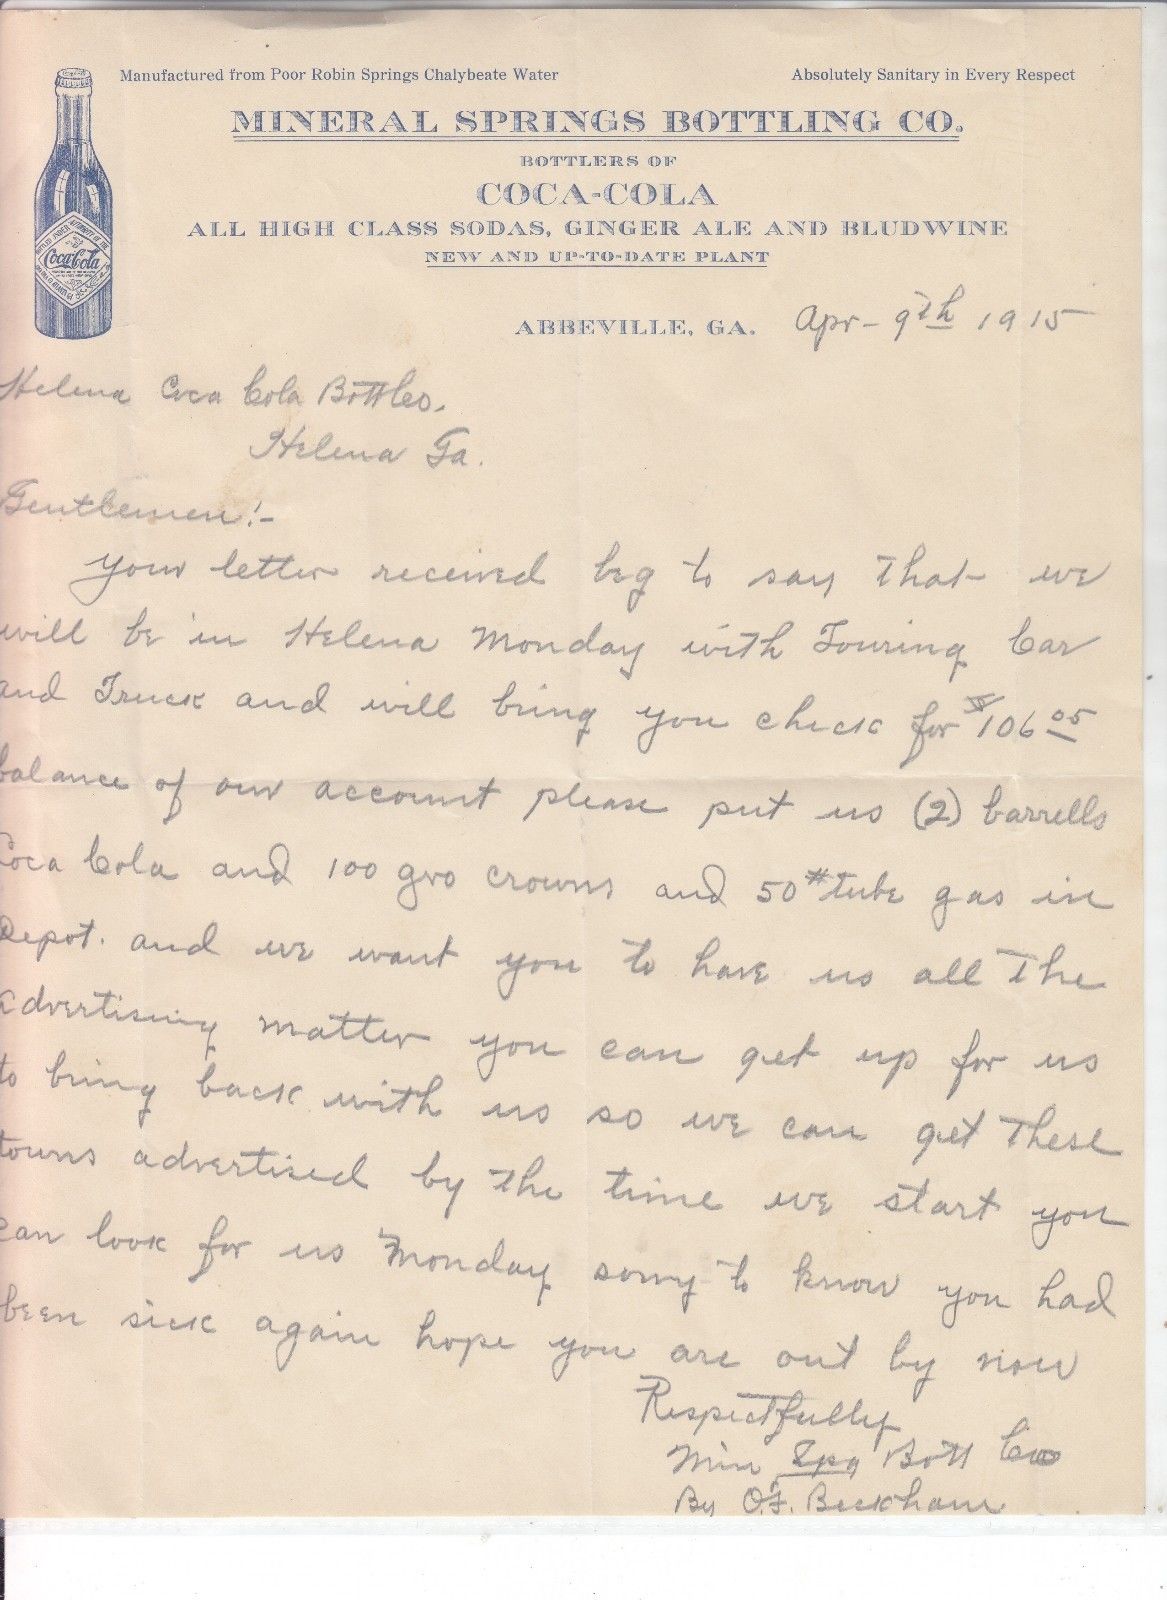 Manufactured from Poor Robin Springs Chalybeate Water
Absolutely Sanitary in Every Respect
MINERAL SPRINGS BOTTLING CO.
BOTTLERS OF
COCA-COLA
ALL HIGH CLASS SODAS, GINGER ALE AND BLUDWINE
NEW AND UP-TO-DATE PLANT
Coca-Cola
ABBEVILLE, GA. Apr- 9th 1915
Helena Coca Cola Bottles.
Helena Ga.
Gentlemen:-
Your letter received beg to say that we
will be in Helena Monday with Touring Car
and Truck and will bring you check for $106 05
balance of our account please put us (2) barrells
Coca Cola and 100 gro crowns and 50 # tube gas in
Depot. and we want you to have us all the
advertising matter you can get up for us
to bring back with us so we can get these
towns advertised by the time we start you
can look for us Monday sorry to know you had
been sick again hope you are out by now
Respectfully
Min Spg Bott Co
By O.F. Beckham